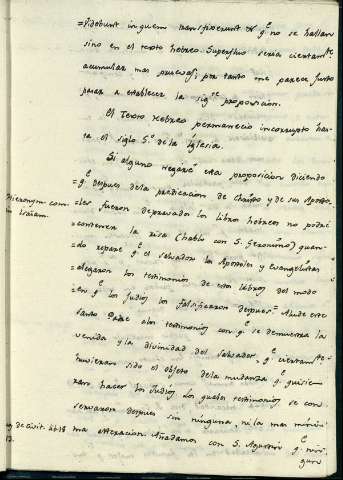 =Videbunt in quem transfixerunt & qe no se hallan
sino en el texto hebreo. Superfluo seria ciertamte
acumular mas pruevas; por tanto me parece justo
pasar a establecer la sigte proposicion.
El Texto Hebreo permanecio incorrupto has-
ta el siglo 5.o de la Iglesia.
Si alguno negáre esta proposicion diciendo
=qe despues de la predicacion de Christo y de sus Aposto-
Hieronym. com. =les fueron depravados los libros hebreos no podré
in Isaiam. =contener la risa (hablo con S. Geronimo) quan-
=do repare qe el Salvador los Apostoles y Evangelistas
=alegaron los testimonios de estos libros del modo
=en qe los Judios los falsificaron despues.= Alude este
Santo Padre a los testimonios con qe se demuestra la
venida y la divinidad del Salvador qe ciertamte
huvieran sido el objeto de la mudanza qe quisie-
ran hacer los Judios los quales testimonios se con-
servaron despues sin ninguna, ni la mas mínim
de Civit. lib 18 ma alteracion. Añadamos con S. Agustin qe nin-
guno